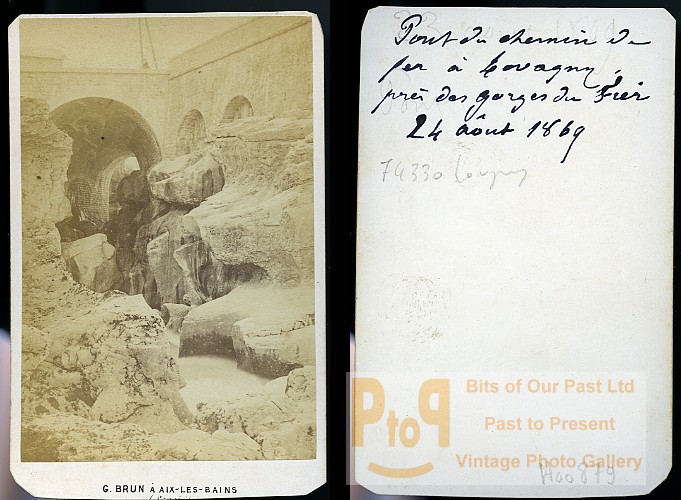 G. BRUN À AIX-LES-BAINS
Pont du chemin de
fer à Lovagny,
près des gorges du Fier
24 août 1869
74330 Lovagny
PtoP
Bits of Our Past Ltd
Past to Present
Vintage Photo Gallery